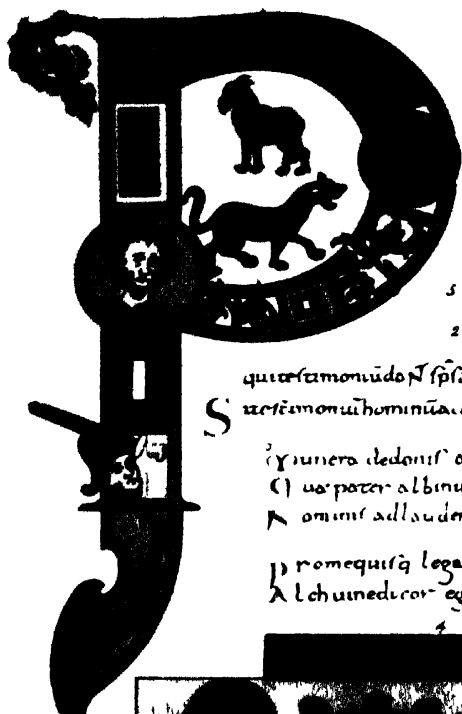 P
5
2
qui testimoniū da
S testimoniū hominū a
munera de donis
Qua pater albinu
Nominis ad lauden
pro me quisq̄ lega
Alchuine dicor eg
4